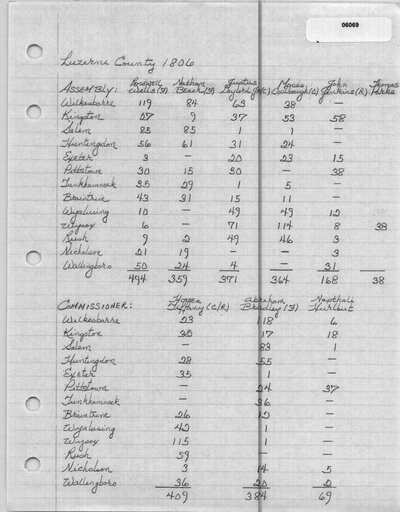 06069
Luzerne County 1806
ASSEMBLY: Roswell Wells (F) Nathan Beach (F) Justus Gaylord Moses Coolbaugh (C) John Jenkins (R) Thomas Parke
Wilkesbarre 119 84 63 38 —
Kingston 27 9 37 53 58
Salem 85 85 1 1 —
Huntingdon 56 61 31 24 —
Exeter 3 — 20 23 15
Pittstown 30 15 30 — 38
Tunkhannock 35 29 1 5 —
Braintrim 43 31 15 11 —
Wyalusing 10 — 49 49 12
Wysox 6 — 71 114 8 38
Rush 9 2 49 46 3
Nicholson 21 19 — — 3
Wallingboro 50 24 4 — 31
494 359 371 364 168 38
COMMISSIONER: Hosea Tiffany (C/R) Abraham Bradley (F) Napthali Hurlbut
Wilkesbarre 23 118 6
Kingston 32 17 18
Salem — 83 1
Huntingdon 28 55 —
Exeter 35 1 —
Pittstown — 24 37
Tunkhannock — 36 —
Braintrim 26 12 —
Wyalusing 42 1 —
Wysox 115 1 —
Rush 59 — —
Nicholson 3 14 5
Wallingboro 36 20 2
409 384 69